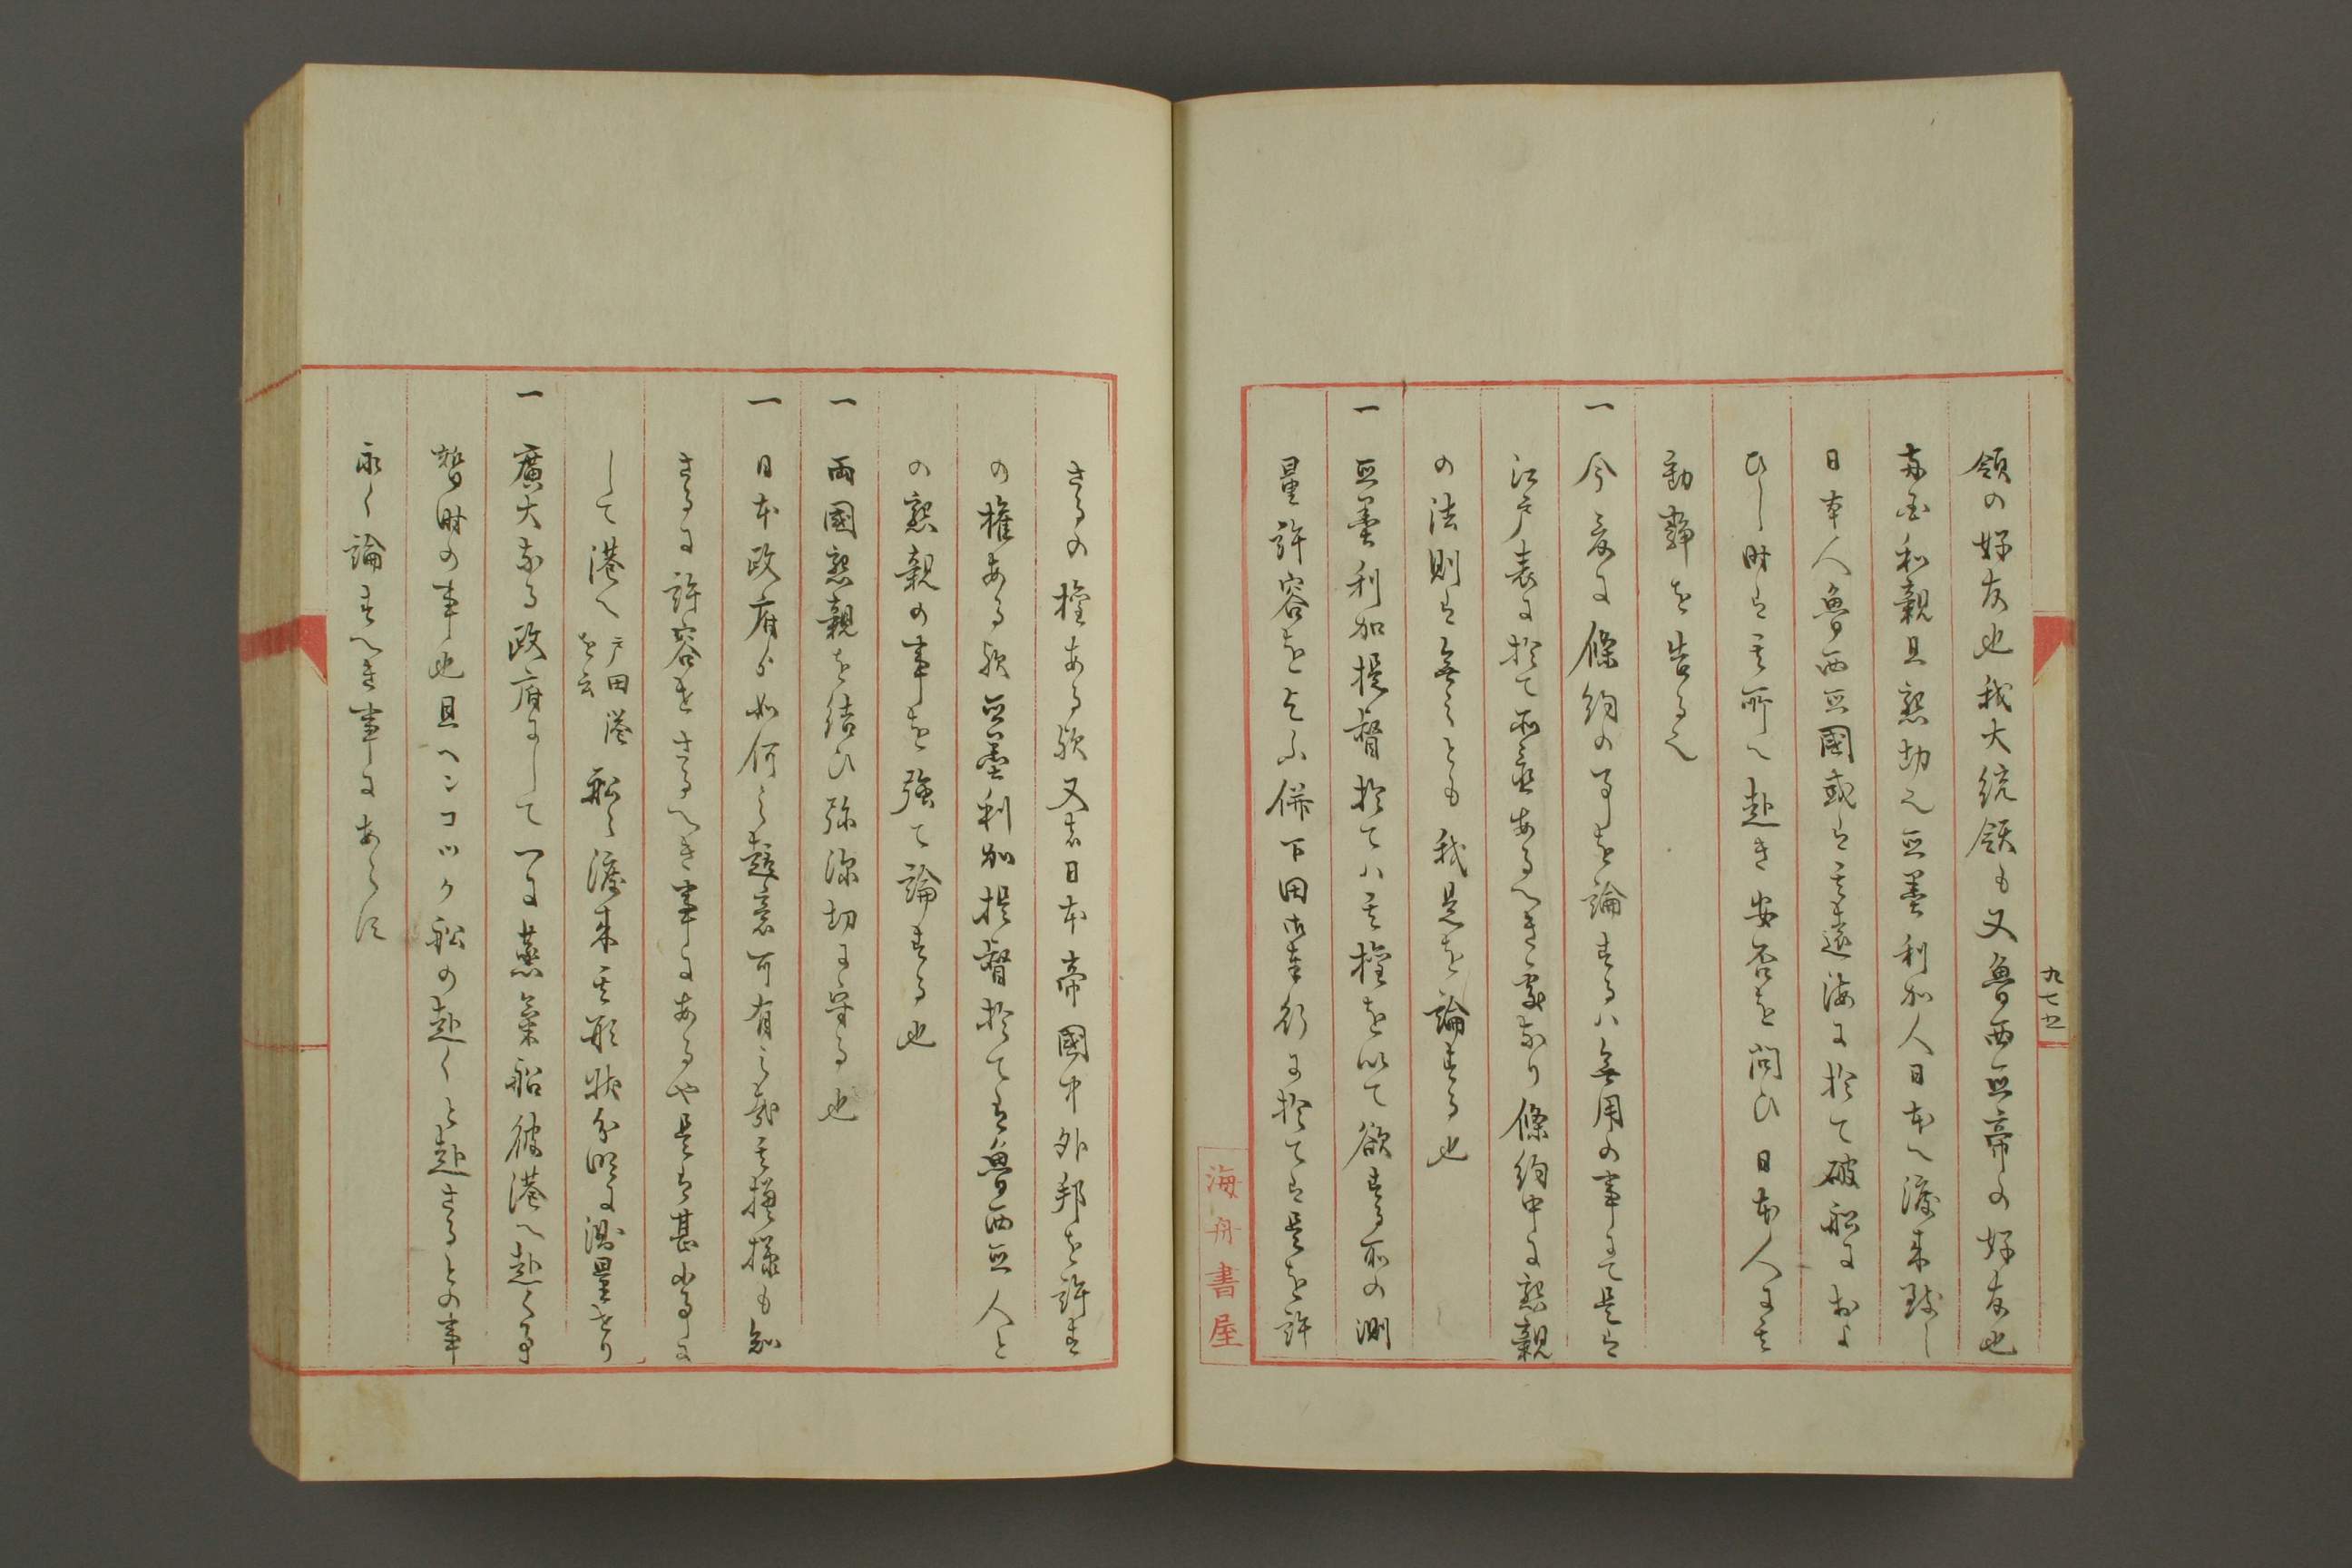 九七五
領の好友也我大統領も又魯西亞帝の好友也
両国和親且懇切之亞墨利加人日本へ渡来致し
日本人魯西亞國或は其遠海に於て破船におよ
ひし時は其所へ赴き安否を問ひ日本人に其
動靜を告る之
一 今爰に條約の事を論するハ無用の事にて是は
江戸表に於て示答あるへき事なり條約中に懇親
の法則は無之とも我是を論する也
一 亞墨利加提督於てハ其權を以て欲する所の測
量許容を乞ふ併下田御奉行に於ては是を許
海舟書屋
さるの權ある歟又は日本帝國中外邦を許す
の權ある歟亞墨利加提督於ては魯西亞人と
の懇親の事を強て論する也
一 両國懇親を結ひ弥深切に守る也
一 日本政府ゟ如何之趣意可有之哉其模様も知
さるに許容をさるへき事にあるや是は甚小事に
して港へ戸田港を云船々渡来其形状分明に測量せり
一 廣大なる政府にして一に蒸氣船彼港へ赴く事
暫時の事也且ヘンコック船の赴くと赴さるとの事
永く論すへき事にあらす